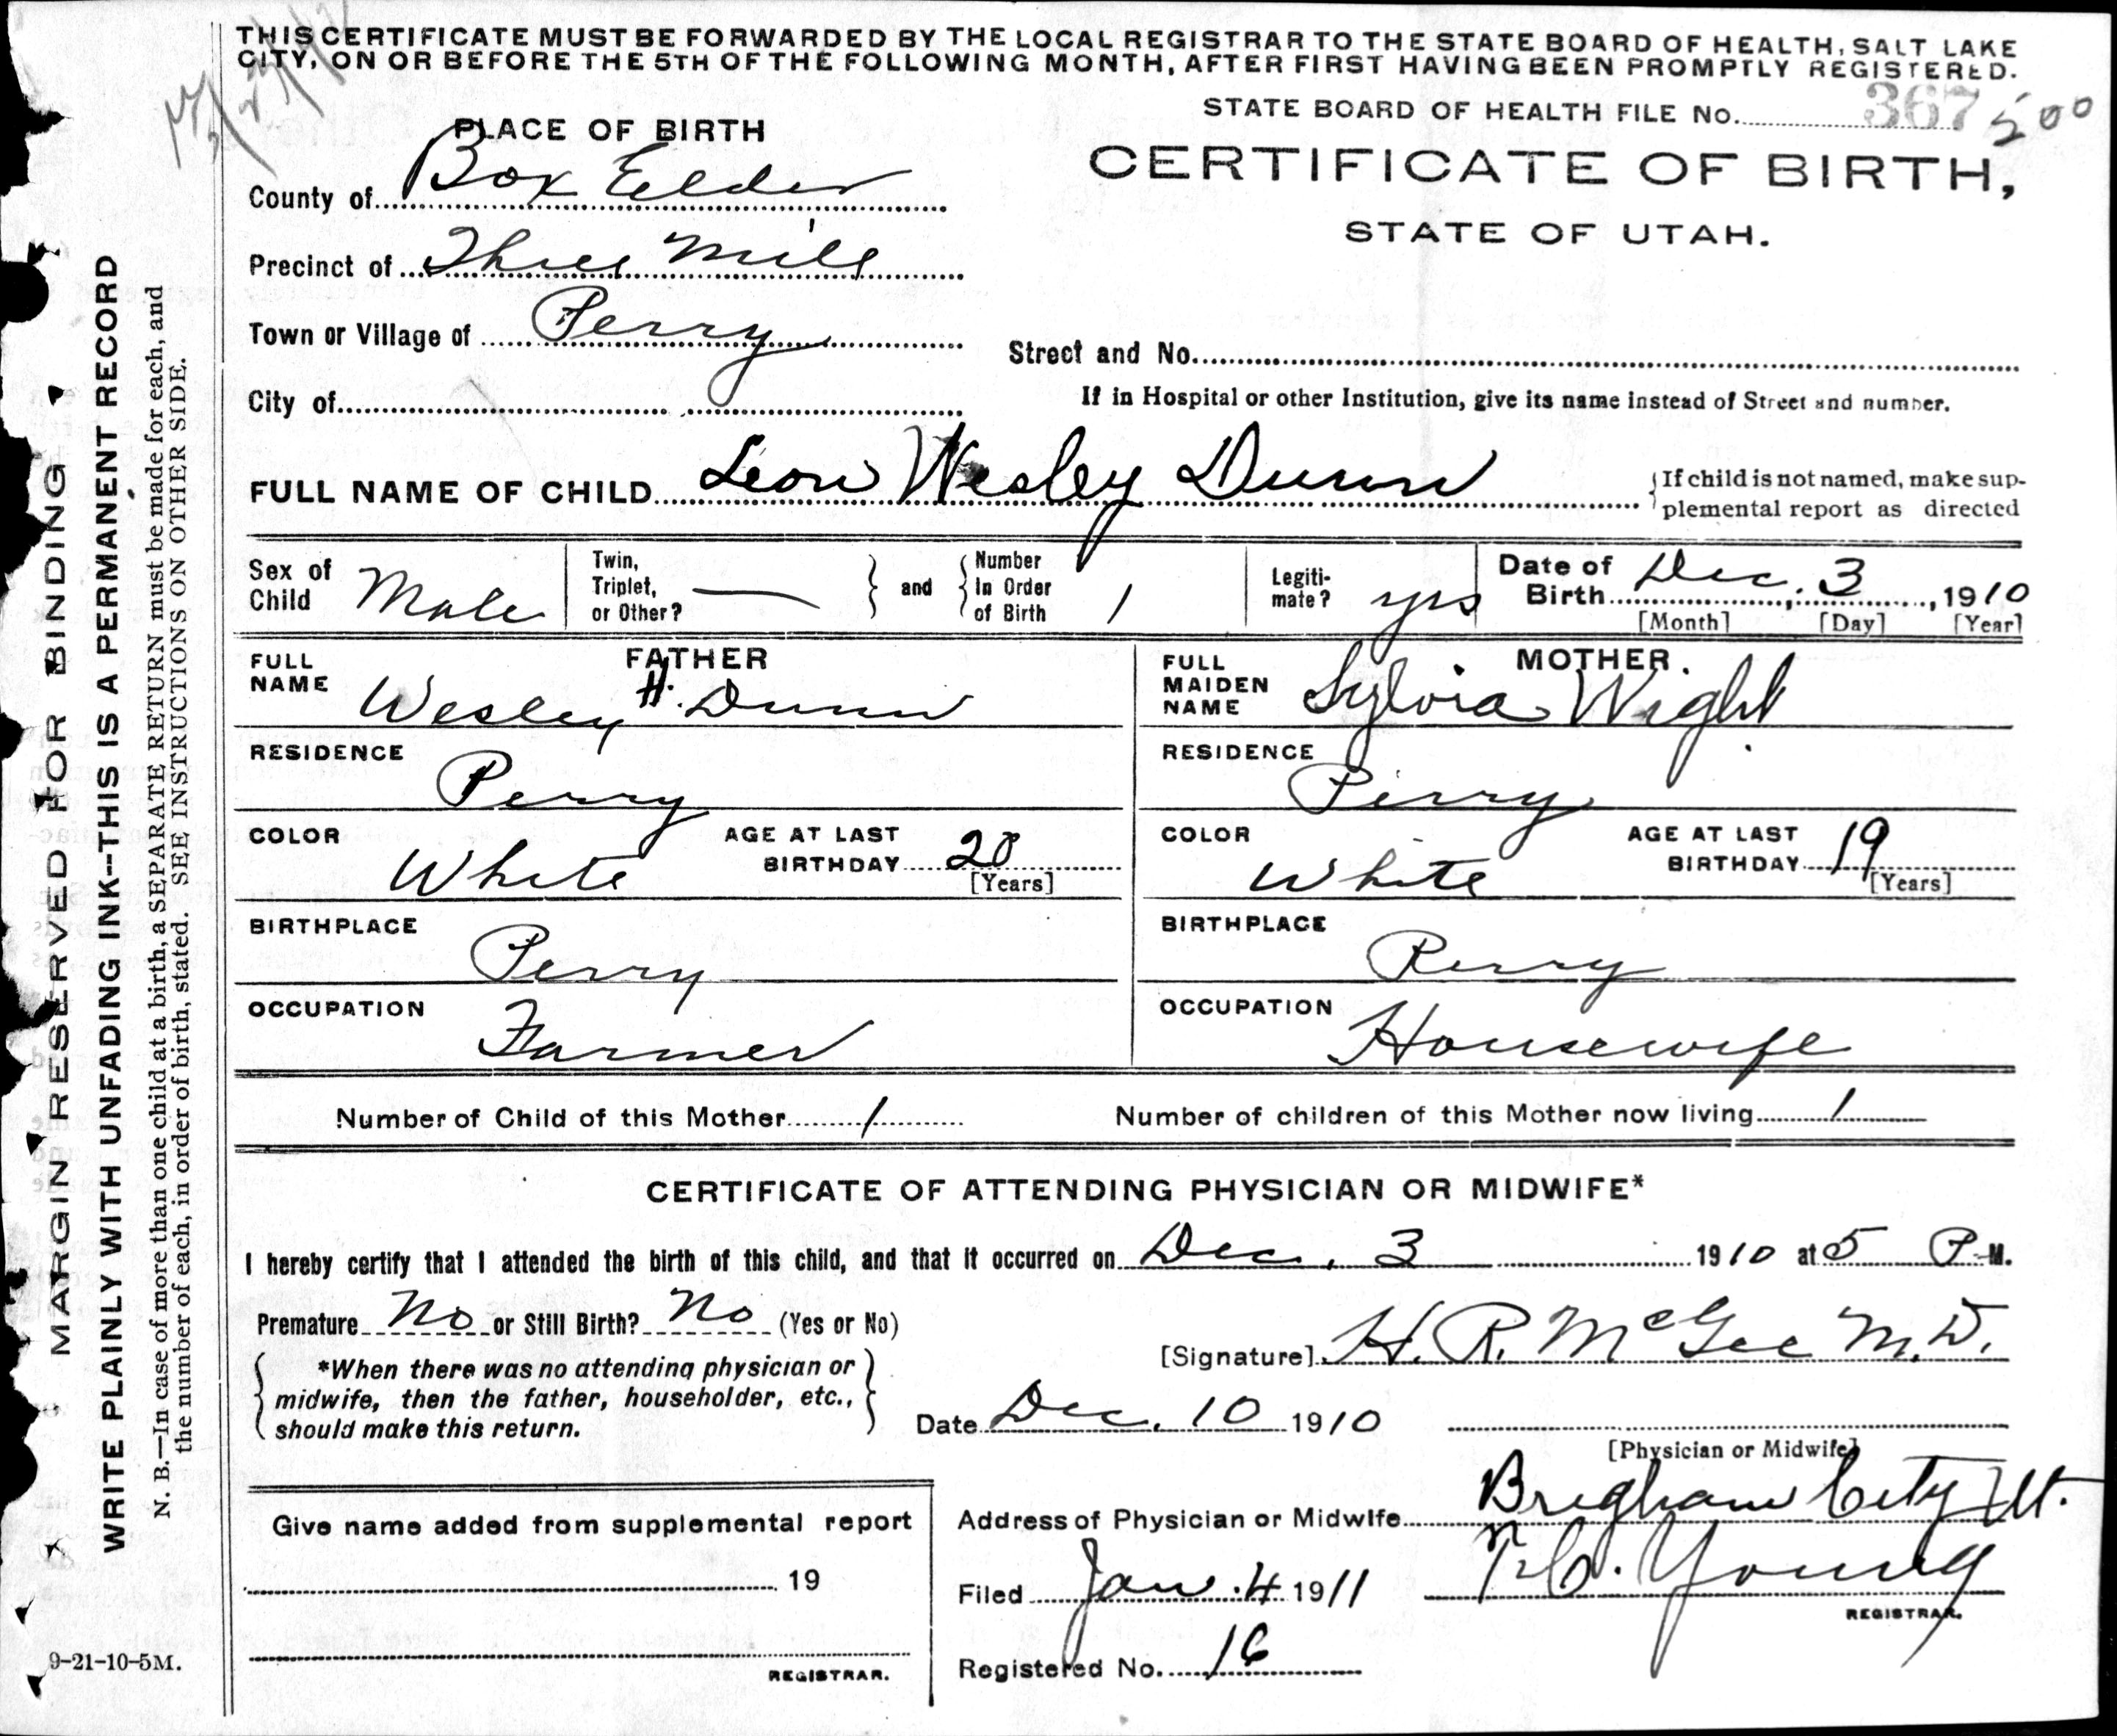 THIS CERTIFICATE MUST BE FORWARDED BY THE LOCAL REGISTRAR TO THE STATE BOARD OF HEALTH, SALT LAKE
CITY, ON OR BEFORE THE 5TH OF THE FOLLOWING MONTH, AFTER FIRST HAVING BEEN PROMPTLY REGISTERED.
STATE BOARD OF HEALTH FILE No. 367 500
PLACE OF BIRTH
CERTIFICATE OF BIRTH,
STATE OF UTAH.
County of Box Elder
Precinct of Three Mile
Town or Village of Perry
Street and No.
City of
If in Hospital or other Institution, give its name instead of Street and number.
FULL NAME OF CHILD Leon Wesley Dunn
If child is not named, make sup-
plemental report as directed
Sex of Child Male
Twin, Triplet, or Other? —
and
Number In Order of Birth 1
Legiti-
mate? yes
Date of Birth Dec. 3, 1910
[Month] [Day] [Year]
FATHER
FULL NAME Wesley H. Dunn
RESIDENCE Perry
COLOR White
AGE AT LAST BIRTHDAY 20 [Years]
BIRTHPLACE Perry
OCCUPATION Farmer
MOTHER.
FULL MAIDEN NAME Sylvia Wight
RESIDENCE Perry
COLOR White
AGE AT LAST BIRTHDAY 19 [Years]
BIRTHPLACE Perry
OCCUPATION Housewife
Number of Child of this Mother 1
Number of children of this Mother now living 1
CERTIFICATE OF ATTENDING PHYSICIAN OR MIDWIFE*
I hereby certify that I attended the birth of this child, and that it occurred on Dec. 3 1910 at 5 P. M.
Premature No or Still Birth? No (Yes or No)
*When there was no attending physician or
midwife, then the father, householder, etc.,
should make this return.
[Signature] H. R. McGee M.D.
Date Dec. 10 1910
[Physician or Midwife]
Give name added from supplemental report
19
REGISTRAR.
Address of Physician or Midwife Brigham City Ut.
Filed Jan. 4 1911
Young
REGISTRAR.
Registered No. 16
MARGIN RESERVED FOR BINDING
WRITE PLAINLY WITH UNFADING INK--THIS IS A PERMANENT RECORD
N. B.—In case of more than one child at a birth, a SEPARATE RETURN must be made for each, and
the number of each, in order of birth, stated. SEE INSTRUCTIONS ON OTHER SIDE.
9-21-10-5M.